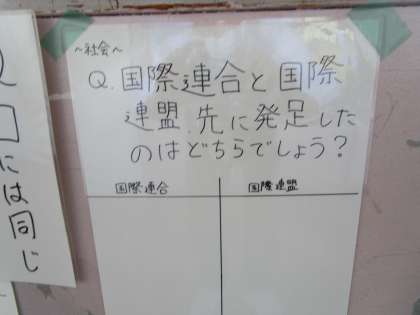 ～社会～
Q. 国際連合と国際
連盟、先に発足した
のはどちらでしょう？
国際連合
国際連盟
には同じ